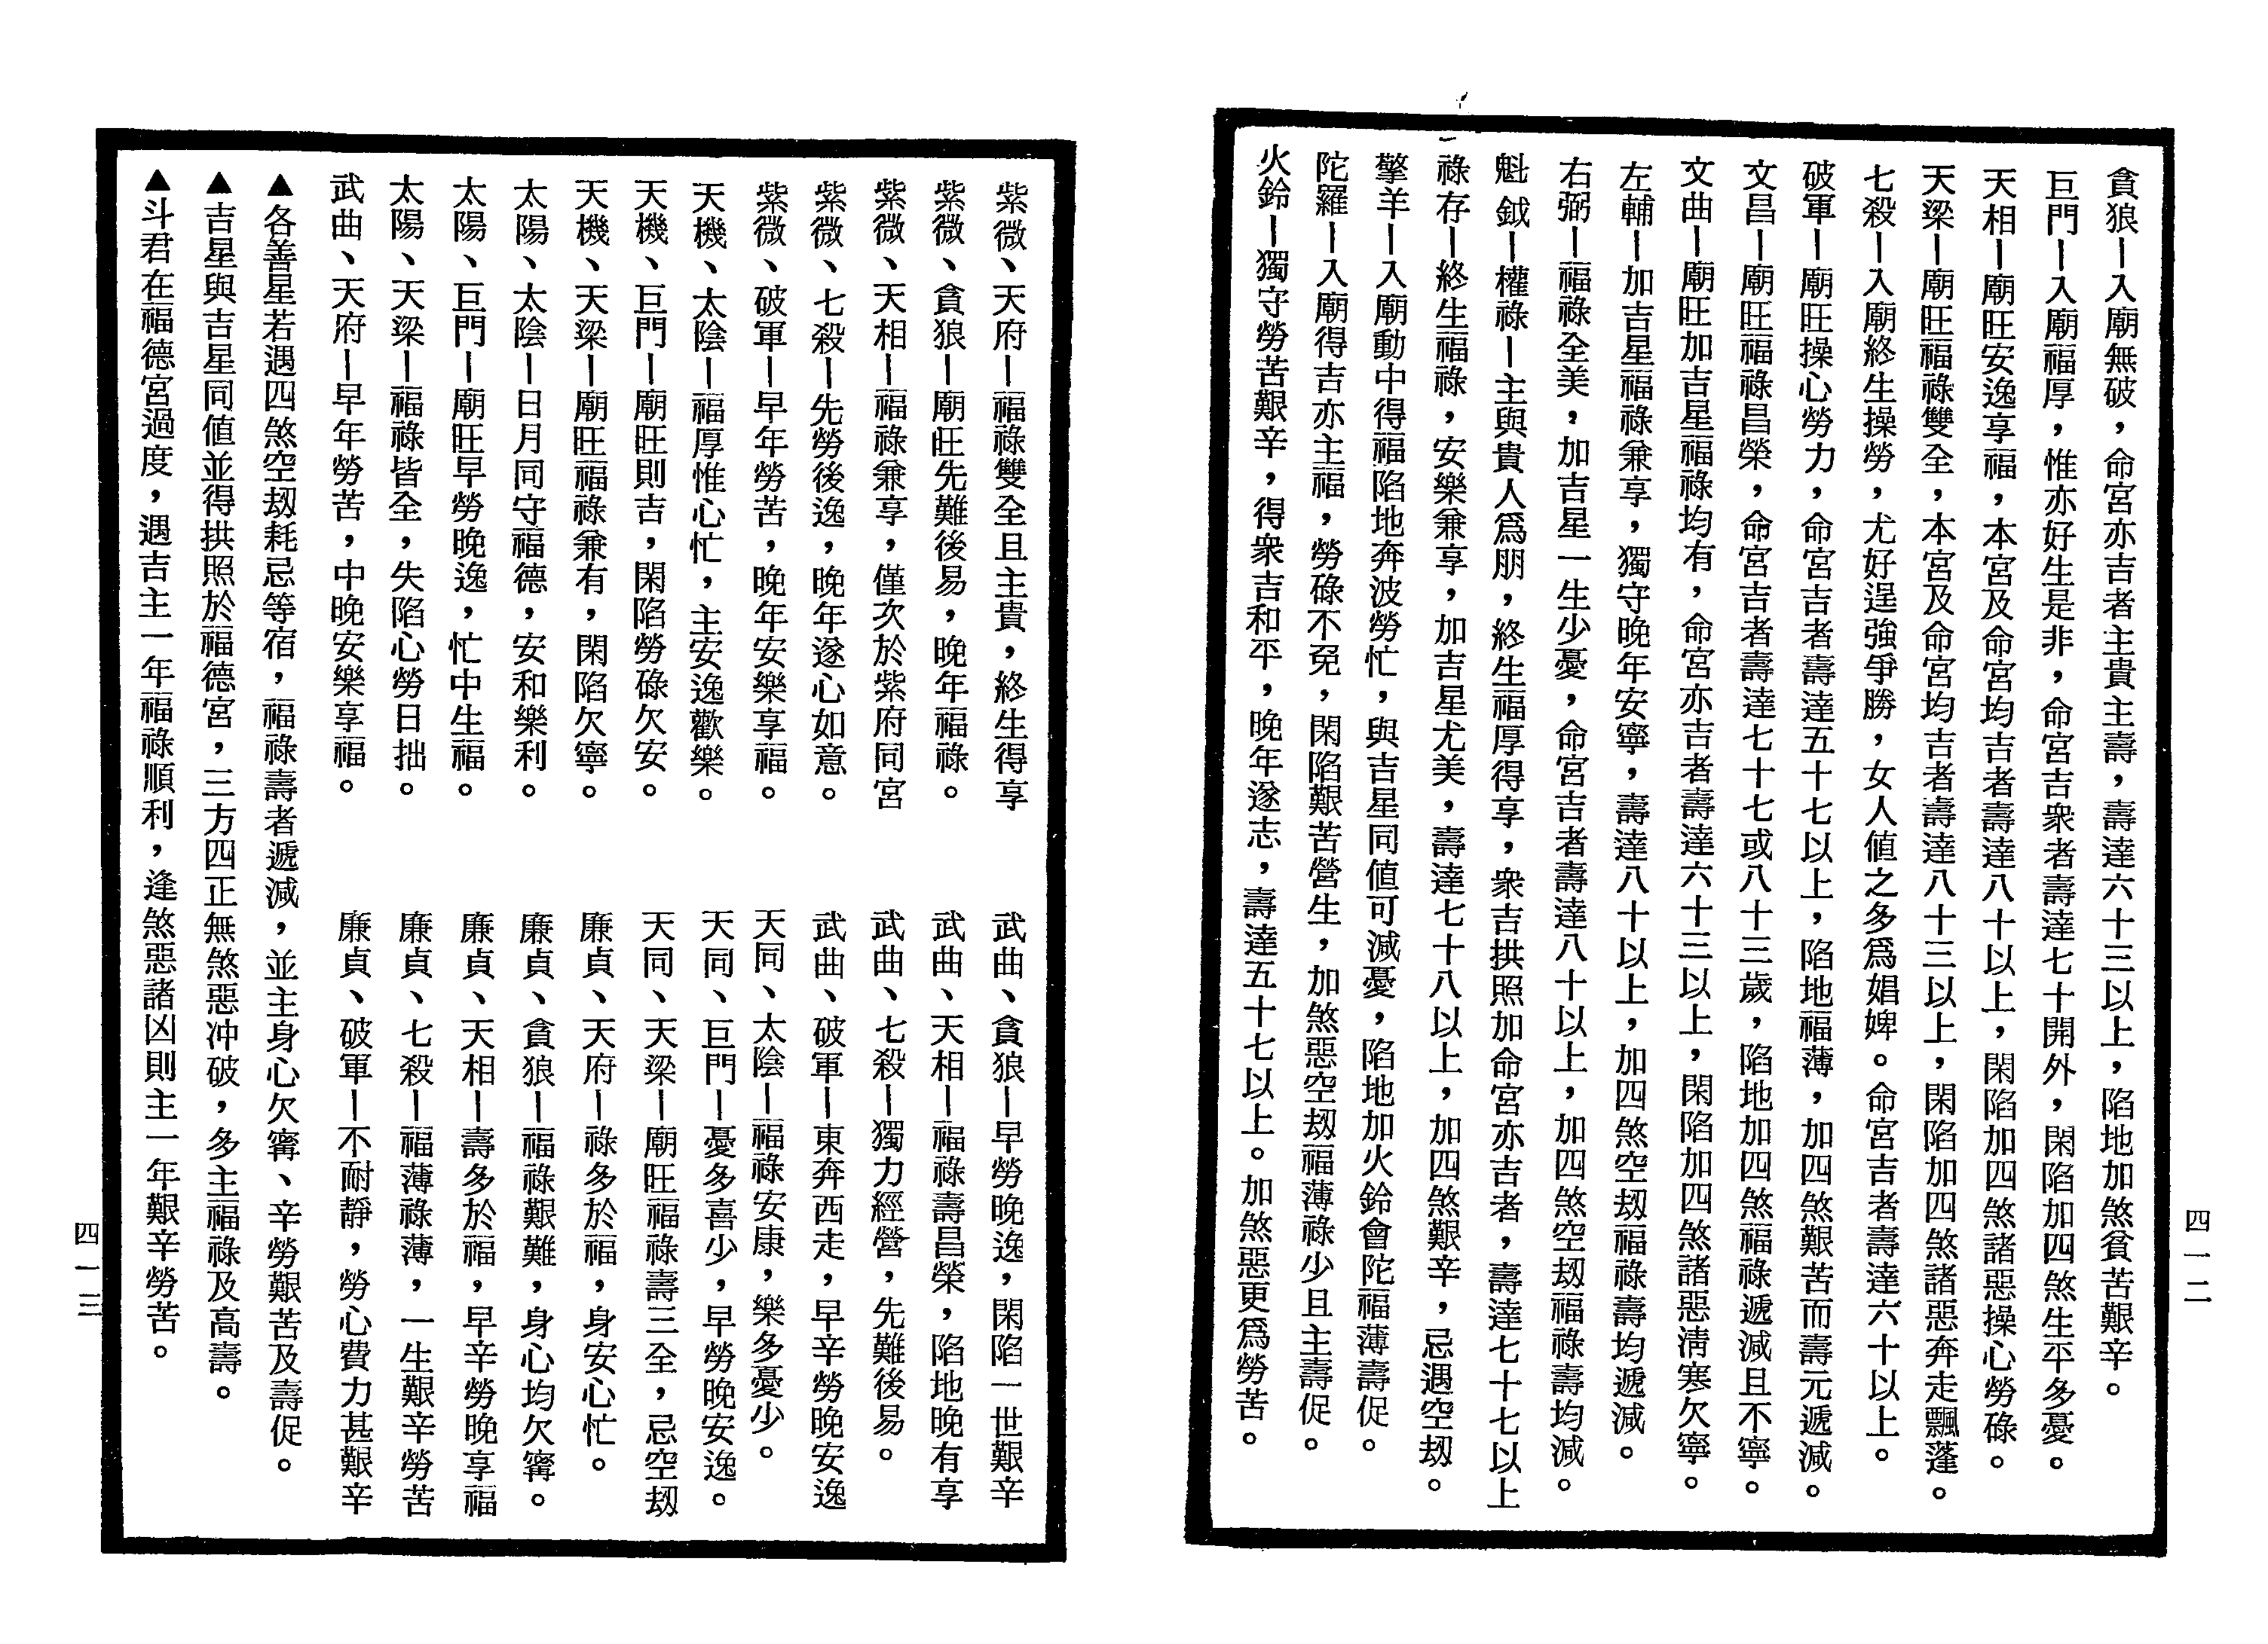 貪狼—入廟無破，命宮亦吉者主貴主壽，壽達六十三以上，陷地加煞貧苦艱辛。
巨門—入廟福厚，惟亦好生是非，命宮吉衆者壽達七十開外，閑陷加四煞生平多憂。
天相—廟旺安逸享福，本宮及命宮均吉者壽達八十以上，閑陷加四煞諸惡操心勞碌。
天梁—廟旺福祿雙全，本宮及命宮均吉者壽達八十三以上，閑陷加四煞諸惡奔走飄蓬。
七殺—入廟終生操勞，尤好逞強爭勝，女人值之多爲娼婢。命宮吉者壽達六十以上。
破軍—廟旺操心勞力，命宮吉者壽達五十七以上，陷地福薄，加四煞艱苦而壽元遞減。
文昌—廟旺福祿昌榮，命宮吉者壽達七十七或八十三歲，陷地加四煞福祿遞減且不寧。
文曲—廟旺加吉星福祿均有，命宮亦吉者壽達六十三以上，閑陷加四煞諸惡淸寒欠寧。
左輔—加吉星福祿兼享，獨守晚年安寧，壽達八十以上，加四煞空刼福祿壽均遞減。
右弼—福祿全美，加吉星一生少憂，命宮吉者壽達八十以上，加四煞空刼福祿壽均減。
魁鉞—權祿—主與貴人爲朋，終生福厚得享，衆吉拱照加命宮亦吉者，壽達七十七以上
祿存—終生福祿，安樂兼享，加吉星尤美，壽達七十八以上，加四煞艱辛，忌遇空刼。
擎羊—入廟動中得福陷地奔波勞忙，與吉星同值可減憂，陷地加火鈴會陀福薄壽促。
陀羅—入廟得吉亦主福，勞碌不免，閑陷艱苦營生，加煞惡空刼福薄祿少且主壽促。
火鈴—獨守勞苦艱辛，得衆吉和平，晚年遂志，壽達五十七以上。加煞惡更爲勞苦。
四一二
紫微、天府—福祿雙全且主貴，終生得享
紫微、貪狼—廟旺先難後易，晚年福祿。
紫微、天相—福祿兼享，僅次於紫府同宮
紫微、七殺—先勞後逸，晚年遂心如意。
紫微、破軍—早年勞苦，晚年安樂享福。
天機、太陰—福厚惟心忙，主安逸歡樂。
天機、巨門—廟旺則吉，閑陷勞碌欠安。
天機、天梁—廟旺福祿兼有，閑陷欠寧。
太陽、太陰—日月同守福德，安和樂利。
太陽、巨門—廟旺早勞晚逸，忙中生福。
太陽、天梁—福祿皆全，失陷心勞日拙。
武曲、天府—早年勞苦，中晚安樂享福。
武曲、貪狼—早勞晚逸，閑陷一世艱辛
武曲、天相—福祿壽昌榮，陷地晚有享
武曲、七殺—獨力經營，先難後易。
武曲、破軍—東奔西走，早辛勞晚安逸
天同、太陰—福祿安康，樂多憂少。
天同、巨門—憂多喜少，早勞晚安逸。
天同、天梁—廟旺福祿壽三全，忌空刼
廉貞、天府—祿多於福，身安心忙。
廉貞、貪狼—福祿艱難，身心均欠寗。
廉貞、天相—壽多於福，早辛勞晚享福
廉貞、七殺—福薄祿薄，一生艱辛勞苦
廉貞、破軍—不耐靜，勞心費力甚艱辛
▲各善星若遇四煞空刼耗忌等宿，福祿壽者遞減，並主身心欠寗、辛勞艱苦及壽促。
▲吉星與吉星同值並得拱照於福德宮，三方四正無煞惡冲破，多主福祿及高壽。
▲斗君在福德宮過度，遇吉主一年福祿順利，逢煞惡諸凶則主一年艱辛勞苦。
四一三